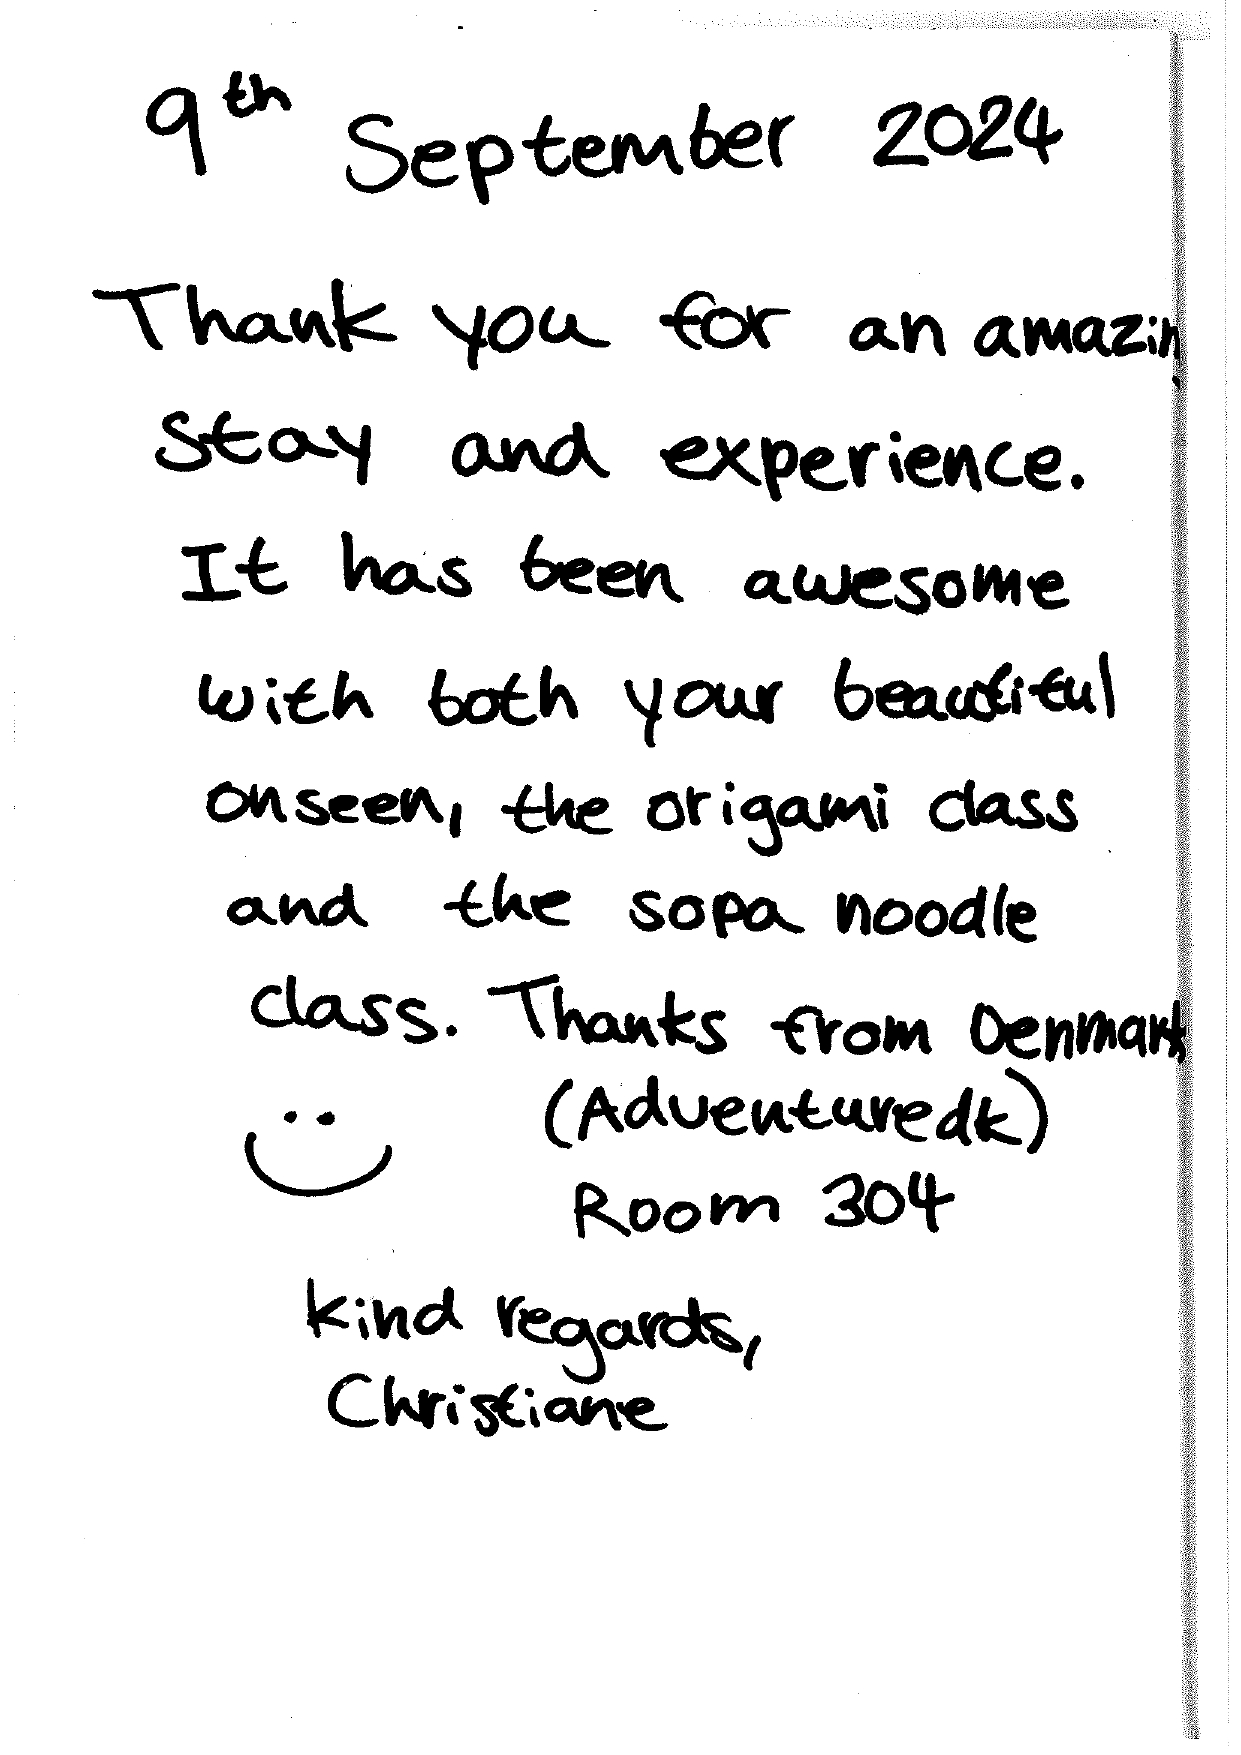 9th September 2024
Thank you for an amazin
stay and experience.
It has been awesome
with both your beautiful
onseen, the origami class
and the sopa noodle
class. Thanks from Denmark
(Adventuredk)
Room 304
kind regards,
Christiane